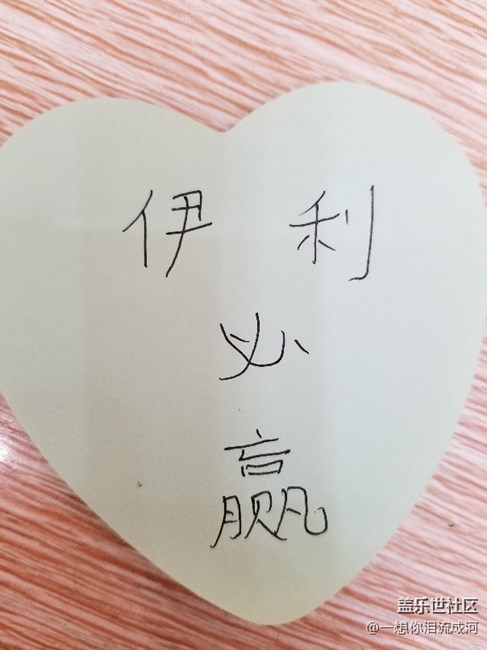 伊 利
必
赢
盖乐世社区
@一想你泪流成河